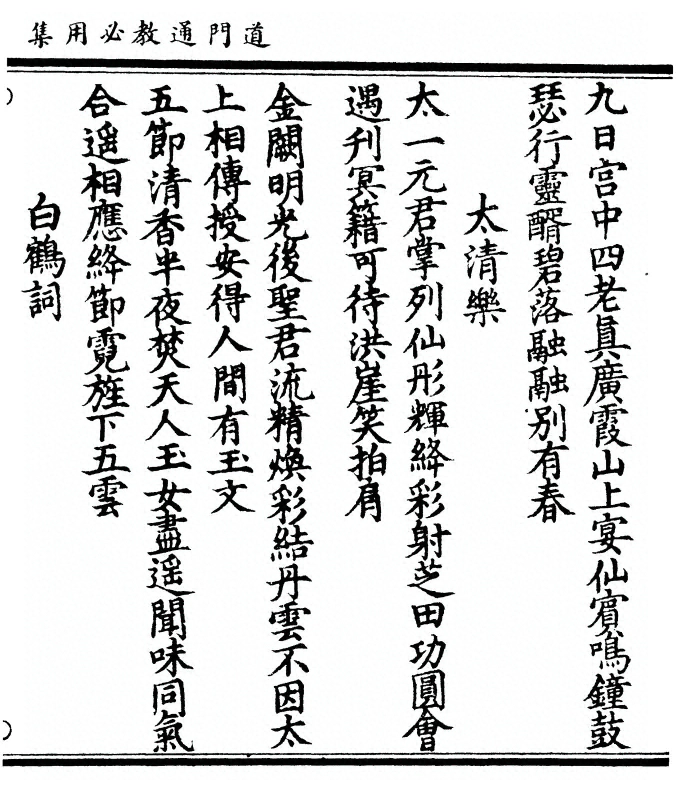 道門通教必用集
九日宫中四老真廣霞山上宴仙賓鳴鐘鼓
瑟行靈醑碧落融融别有春
太清樂
太一元君掌列仙彤輝絳彩射芝田功圓會
遇刋冥籍可待洪崖笑拍肩
金闕明光後聖君流精煥彩結丹雲不因太
上相傳授安得人間有玉文
五節清香半夜焚天人玉女盡遥聞味同氣
合遥相應絳節霓旌下五雲
白鶴詞